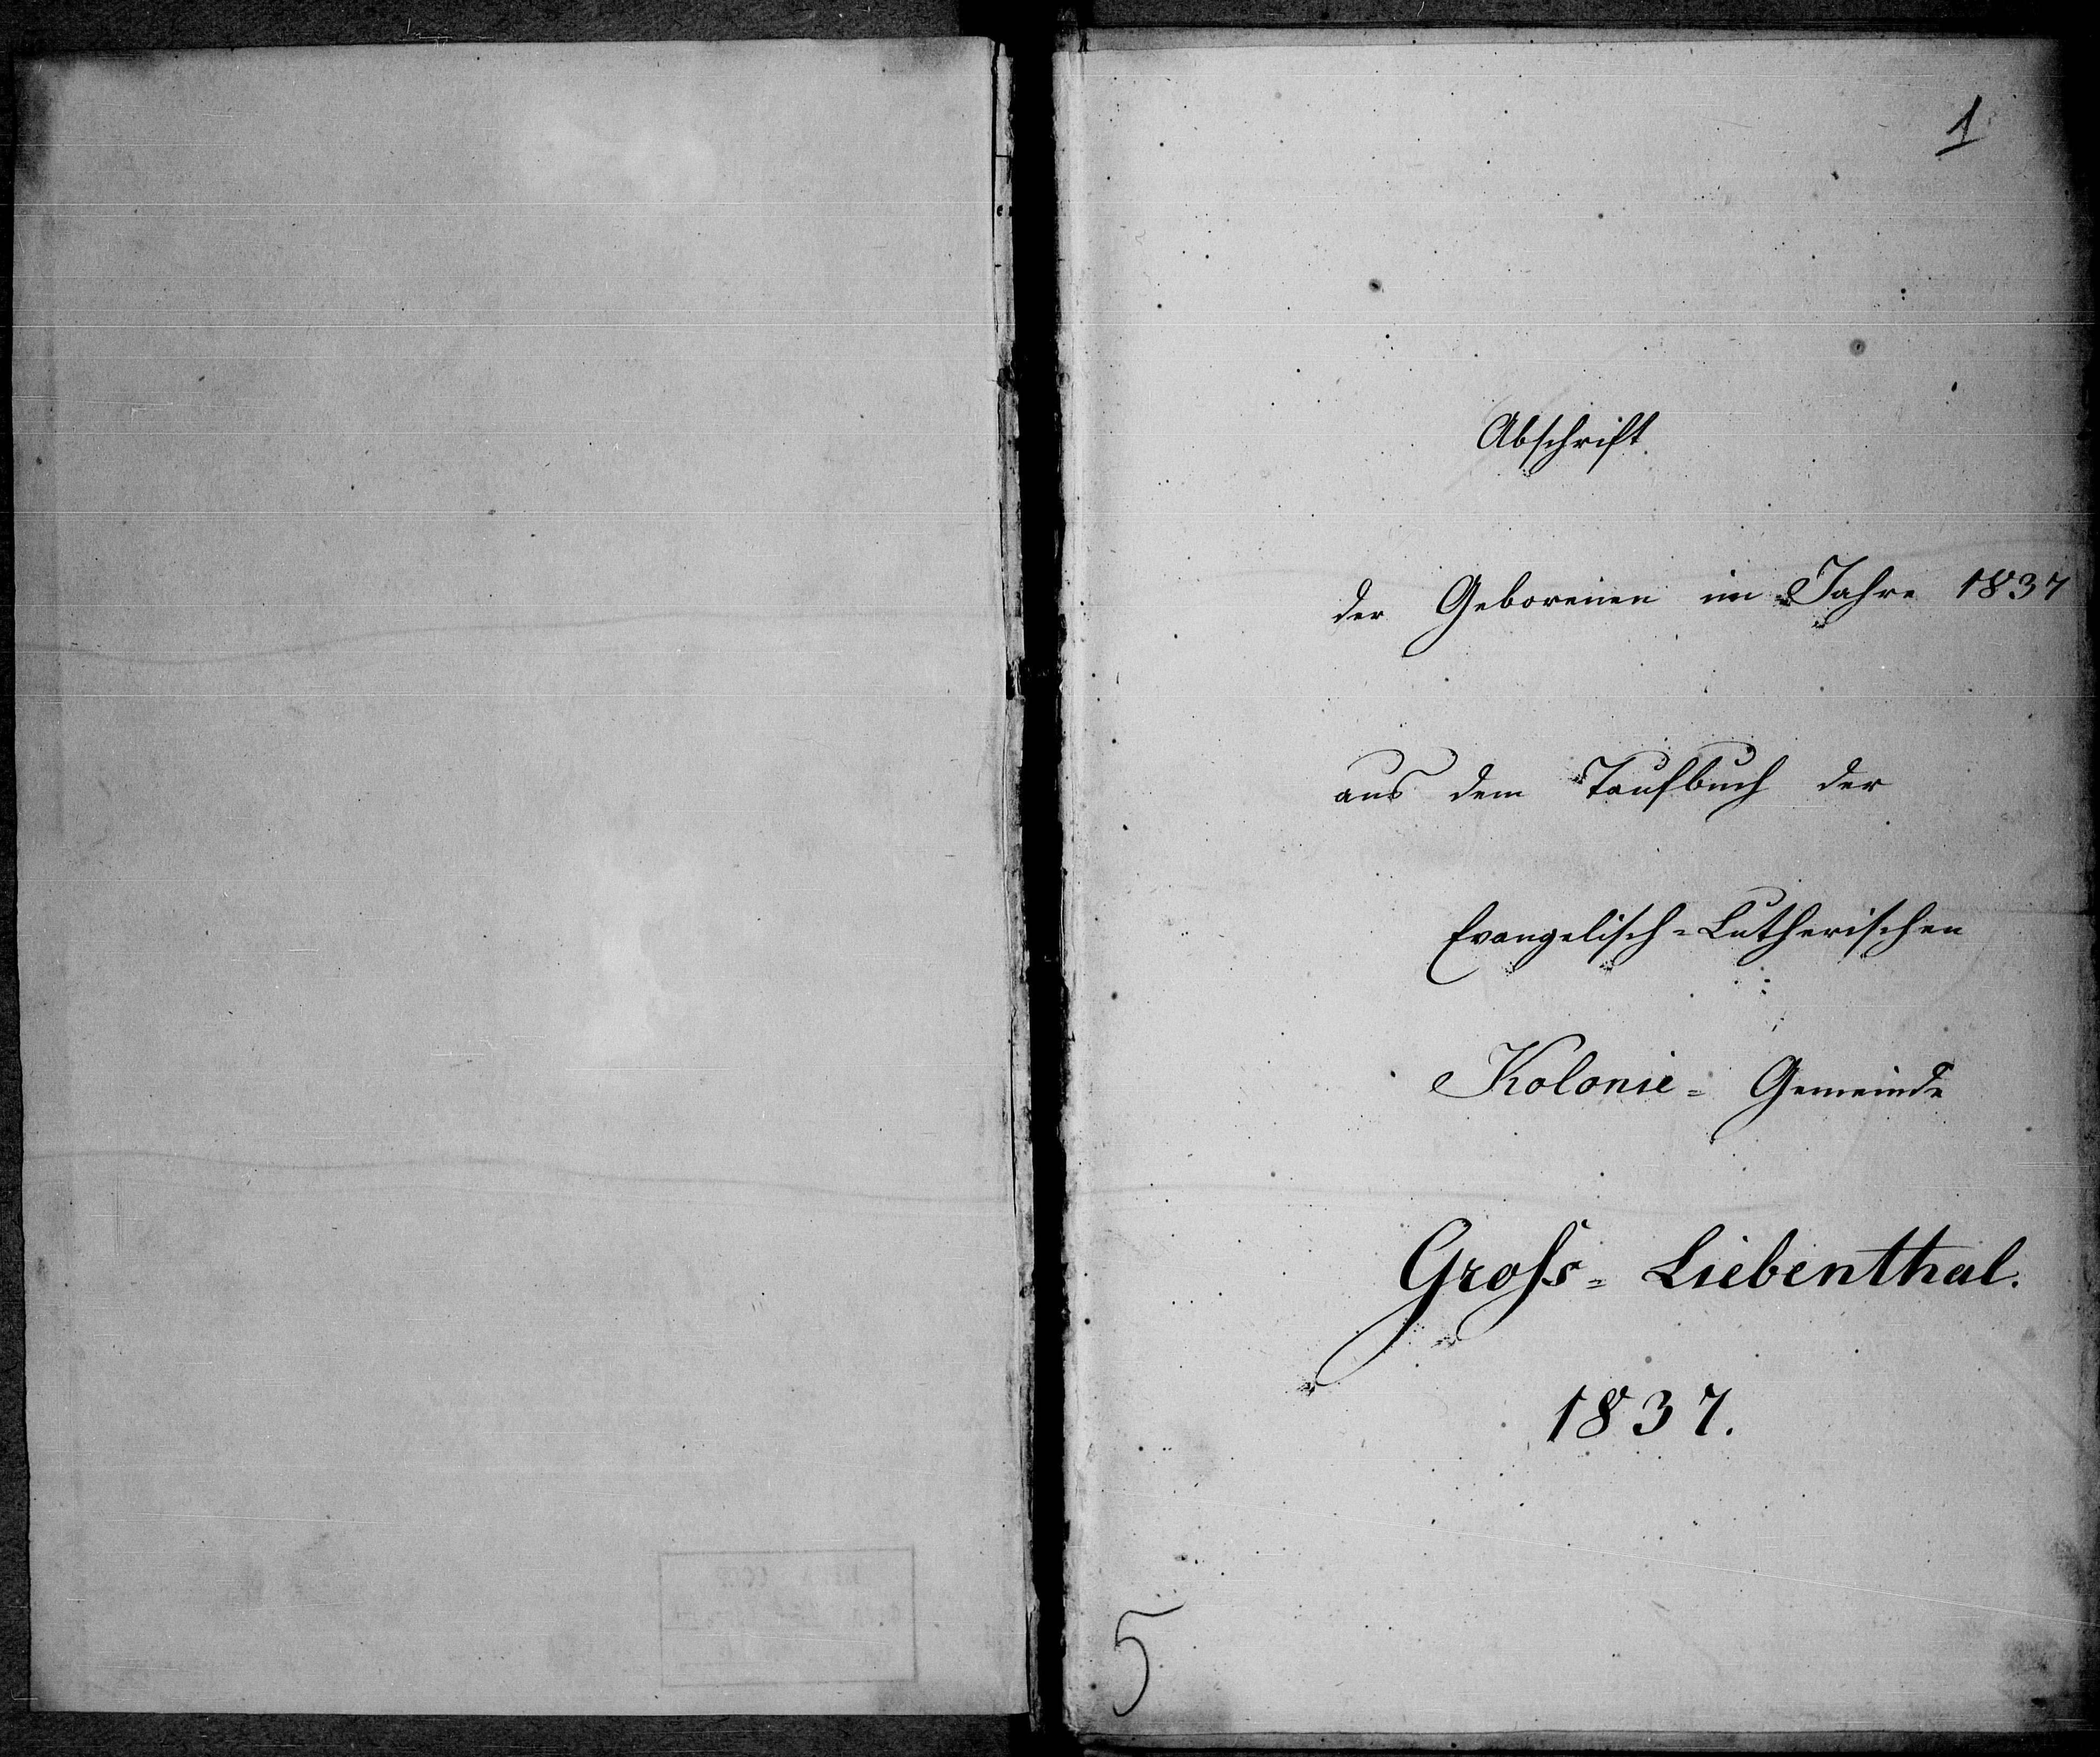 1
Abschrift
der Geborenen im Jahre 1837
aus dem Taufbuch der
Evangelisch-Lutherischen
Kolonie- Gemeinde
Groſs- Liebenthal.
1837.
5